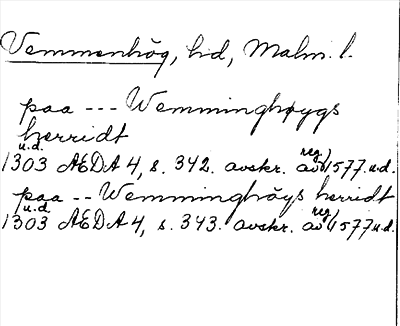 Vemmenhög, hd, Malm. l.
paa --- Wemminghøygs
herridt
u.d.
1303 AEDA 4, s. 342. avskr. av reg) 1577 u.d.
paa -- Wemminghöys herridt
u.d
1303 AEDA 4, s. 343. avskr. av reg) 1577 u.d.